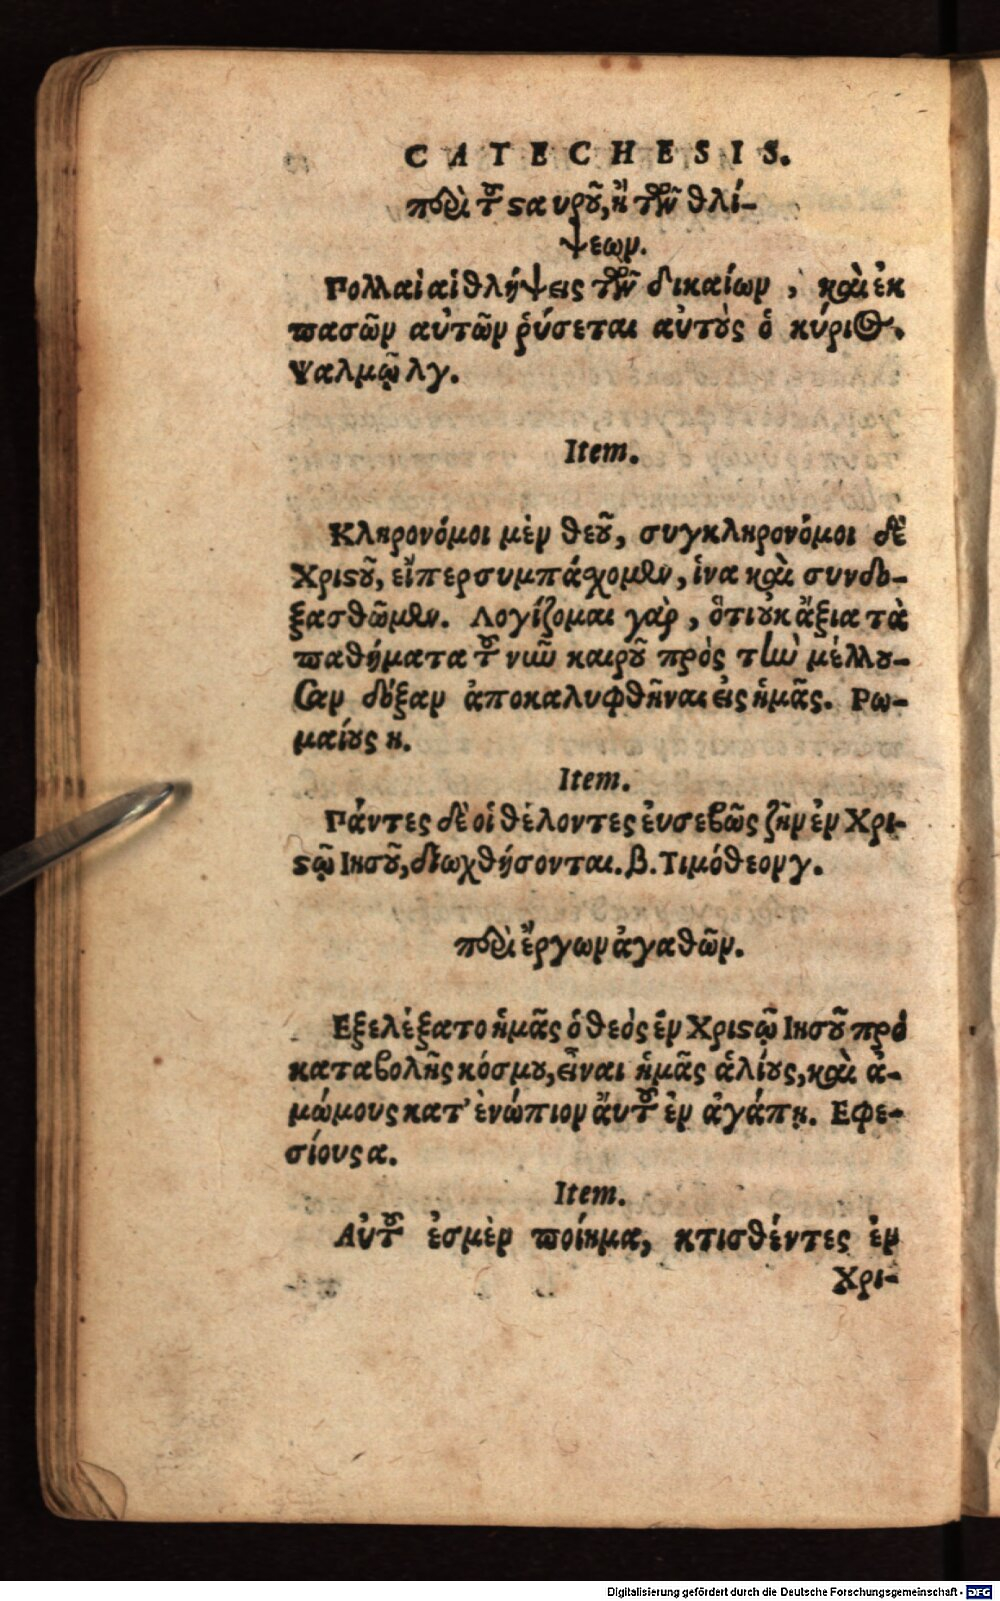 CATECHESIS.
περὶ τοῦ σαυροῦ, ἢ τῶν θλί-
ψεων.
Πολλαὶ αἱ θλήψεις τῶν δικαίων, καὶ ἐκ
πασῶν αὐτῶν ῥύσεται αὐτοὺς ὁ κύριος.
Ψαλμῷ λγ.
Item.
Κληρονόμοι μὲν θεοῦ, συγκληρονόμοι δὲ
Χριστοῦ, εἴπερ συμπάχομεν, ἵνα καὶ συνδο-
ξασθῶμεν. Λογίζομαι γὰρ, ὅτι οὐκ ἄξια τὰ
παθήματα τοῦ νῦν καιροῦ πρὸς τὴν μέλλου-
σαν δόξαν ἀποκαλυφθῆναι εἰς ἡμᾶς. Ρω-
μαίους η.
Item.
Πάντες δὲ οἱ θέλοντες ἐυσεβῶς ζῆν ἐν Χρι-
στῷ Ιησοῦ, διωχθήσονται. β. Τιμόθεον γ.
περὶ ἔργων ἀγαθῶν.
Εξελέξατο ἡμᾶς ὁ θεὸς ἐν Χριστῷ Ιησοῦ πρὸ
καταβολῆς κόσμου, εἶναι ἡμᾶς ἁλίους, καὶ ἀ-
μώμους κατ' ἐνώπιον ἄυτοῦ ἐν ἀγάπῃ. Εφε-
σίους α.
Item.
Αὐτοῦ ἐσμὲν ποίημα, κτισθέντες ἐν
Χρι-
Digitalisierung gefördert durch die Deutsche Forschungsgemeinschaft - DFG